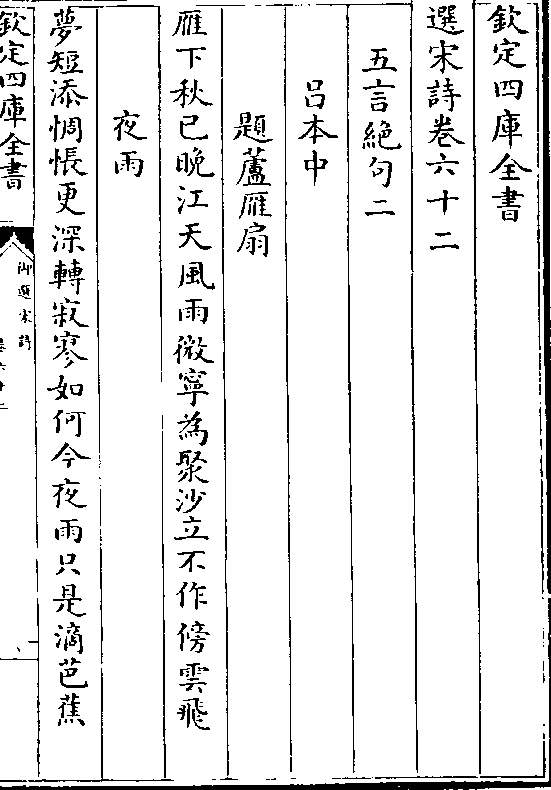 欽定四庫全書
選宋詩卷六十二
五言絶句二
吕本中
題蘆雁扇
雁下秋已晚江天風雨微寧為聚沙立不作傍雲飛
夜雨
夢短添惆悵更深轉寂寥如何今夜雨只是滴芭蕉
欽定四庫全書
御選宋詩